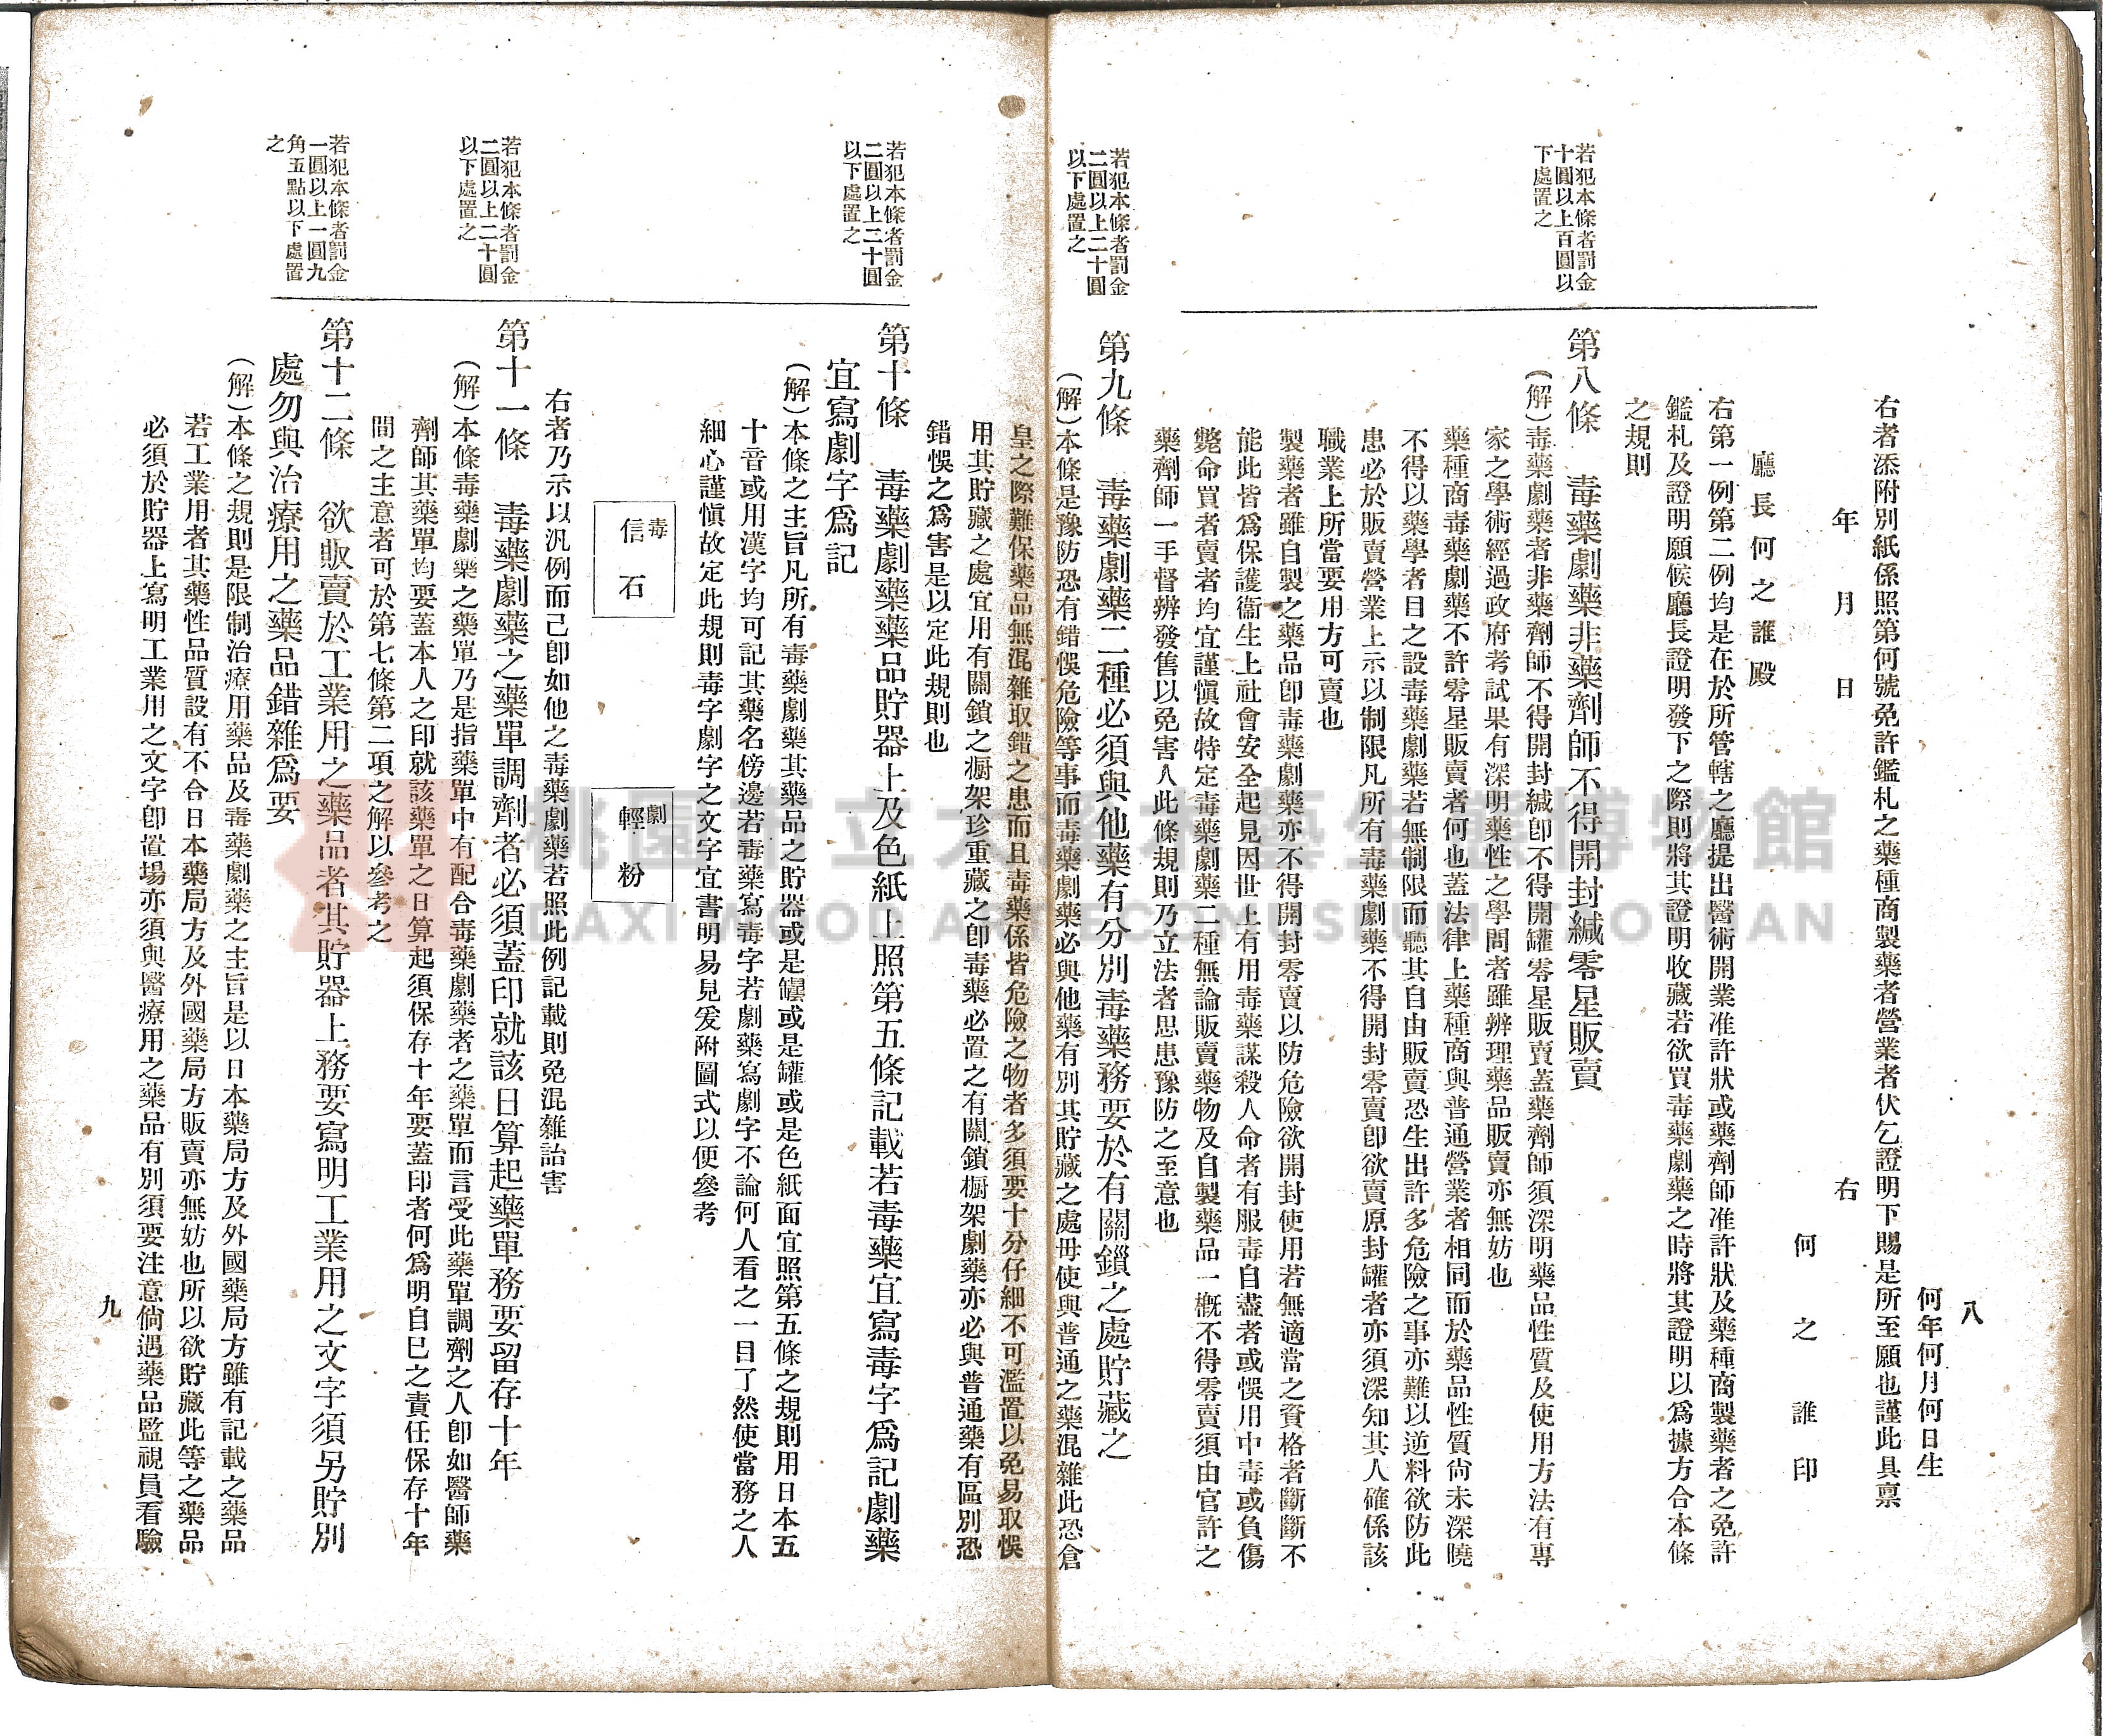 八
何年何月何日生
右者添附別紙係照第何號免許鑑札之藥種商製藥者營業者伏乞證明下賜是所至願也謹此具稟
年　月　日　　右
何　之　誰　印
廳長何之誰殿
右第一例第二例均是在於所管轄之廳提出醫術開業准許狀或藥劑師准許狀及藥種商製藥者之免許
鑑札及證明願候廳長證明發下之際則將其證明收藏若欲買毒藥劇藥之時將其證明以爲據方合本條
之規則
若犯本條者罰金
十圓以上百圓以
下處置之
第八條　毒藥劇藥非藥劑師不得開封緘零星販賣
（解）毒藥劇藥者非藥劑師不得開封緘卽不得開罐零星販賣蓋藥劑師須深明藥品性質及使用方法有專
家之學術經過政府考試果有深明藥性之學問者雖辨理藥品販賣亦無妨也
藥種商毒藥劇藥不許零星販賣者何也蓋法律上藥種商與普通營業者相同而於藥品性質尙未深曉
不得以藥學者目之設毒藥劇藥若無制限而聽其自由販賣恐生出許多危險之事亦難以逆料欲防此
患必於販賣營業上示以制限凡所有毒藥劇藥不得開封零賣卽欲賣原封罐者亦須深知其人確係該
職業上所當要用方可賣也
製藥者雖自製之藥品卽毒藥劇藥亦不得開封零賣以防危險欲開封使用若無適當之資格者斷斷不
能此皆爲保護衞生上社會安全起見因世上有用毒藥謀殺人命者有服毒自盡者或悞用中毒或負傷
斃命買者賣者均宜謹愼故特定毒藥劇藥二種無論販賣藥物及自製藥品一概不得零賣須由官許之
藥劑師一手督辨發售以免害人此條規則乃立法者思患豫防之至意也
若犯本條者罰金
二圓以上二十圓
以下處置之
第九條　毒藥劇藥二種必須與他藥有分別毒藥務要於有關鎖之處貯藏之
（解）本條是豫防恐有錯悞危險等事而毒藥劇藥必與他藥有別其貯藏之處毋使與普通之藥混雜此恐倉
皇之際難保藥品無混雜取錯之患而且毒藥係皆危險之物者多須要十分仔細不可濫置以免易取悞
用其貯藏之處宜用有關鎖之橱架珍重藏之卽毒藥必置之有關鎖橱架劇藥亦必與普通藥有區別恐
錯悞之爲害是以定此規則也
若犯本條者罰金
二圓以上二十圓
以下處置之
第十條　毒藥劇藥藥品貯器上及色紙上照第五條記載若毒藥宜寫毒字爲記劇藥
宜寫劇字爲記
（解）本條之主旨凡所有毒藥劇藥其藥品之貯器或是罎或是罐或是色紙面宜照第五條之規則用日本五
十音或用漢字均可記其藥名傍邊若毒藥寫毒字若劇藥寫劇字不論何人看之一目了然使當務之人
細心謹愼故定此規則毒字劇字之文字宜書明易見爰附圖式以便參考
毒
信石
劇
輕粉
右者乃示以汎例而已卽如他之毒藥劇藥若照此例記載則免混雜詒害
若犯本條者罰金
二圓以上二十圓
以下處置之
第十一條　毒藥劇藥之藥單調劑者必須蓋印就該日算起藥單務要留存十年
（解）本條毒藥劇藥之藥單乃是指藥單中有配合毒藥劇藥者之藥單而言受此藥單調劑之人卽如醫師藥
劑師其藥單均要蓋本人之印就該藥單之日算起須保存十年要蓋印者何爲明自已之責任保存十年
間之主意者可於第七條第二項之解以參考之
若犯本條者罰金
一圓以上一圓九
角五點以下處置
之
第十二條　欲販賣於工業用之藥品者其貯器上務要寫明工業用之文字須另貯別
處勿與治療用之藥品錯雜爲要
（解）本條之規則是限制治療用藥品及毒藥劇藥之主旨是以日本藥局方及外國藥局方雖有記載之藥品
若工業用者其藥性品質設有不合日本藥局方及外國藥局方販賣亦無妨也所以欲貯藏此等之藥品
必須於貯器上寫明工業用之文字卽置場亦須與醫療用之藥品有別須要注意倘遇藥品監視員看驗
九
桃園市立大溪木藝生態博物館
DAXI WOOD ART ECOMUSEUM, TAOYUAN